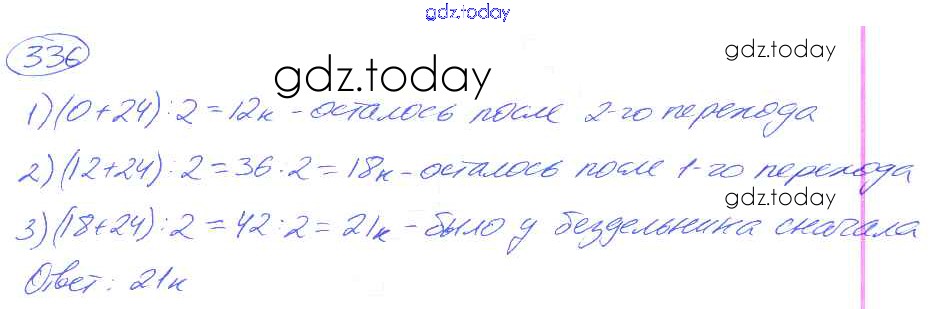 gdz.today
336
gdz.today
gdz.today
1) (0+24) : 2 = 12к - осталось после 2-го перехода
2) (12+24) : 2 = 36 : 2 = 18к - осталось после 1-го перехода
gdz.today
3) (18+24) : 2 = 42 : 2 = 21к - было у бездельника сначала
Ответ: 21к